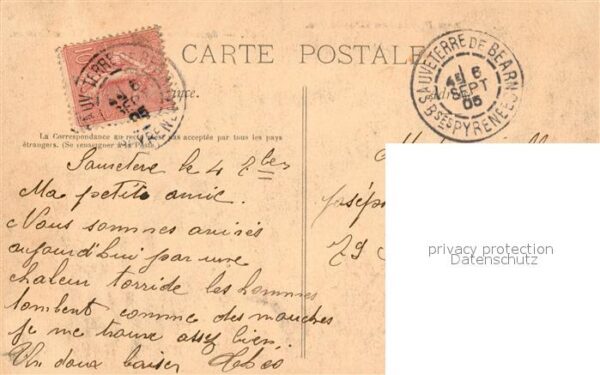 CARTE POSTALE
La Correspondance au recto n'est pas acceptée par tous les pays
étrangers. (Se renseigner à la Poste)
SAUVETERRE DE BEARN
6
SEPT
05
Bses PYRENEES
SAUVETERRE DE
6
05
PYRENEES
Sauveterre le 4 7bre
Ma petite amie.
Nous sommes arrivés
aujourd'hui par une
chaleur torride les hommes
tombent comme des mouches
je me trouve assez bien.
Un doux baiser
79
privacy protection
Datenschutz